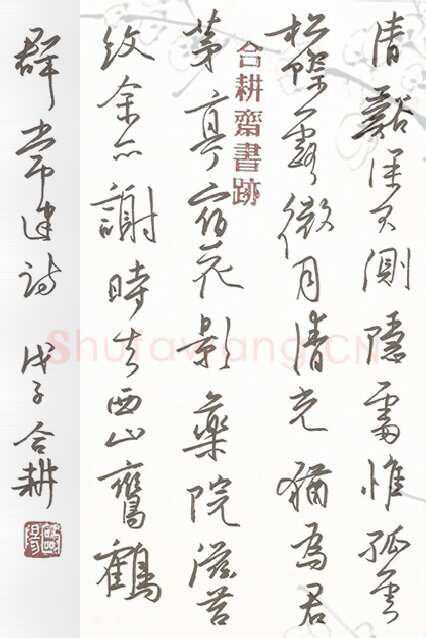 清谿深不測隱處惟孤雲
松際露微月清光猶為君
茅亭宿花影藥院滋苔
紋余亦謝時去西山鸞鶴
群 常建詩 戊子 合耕
合耕齋書跡
Shufawang.CN